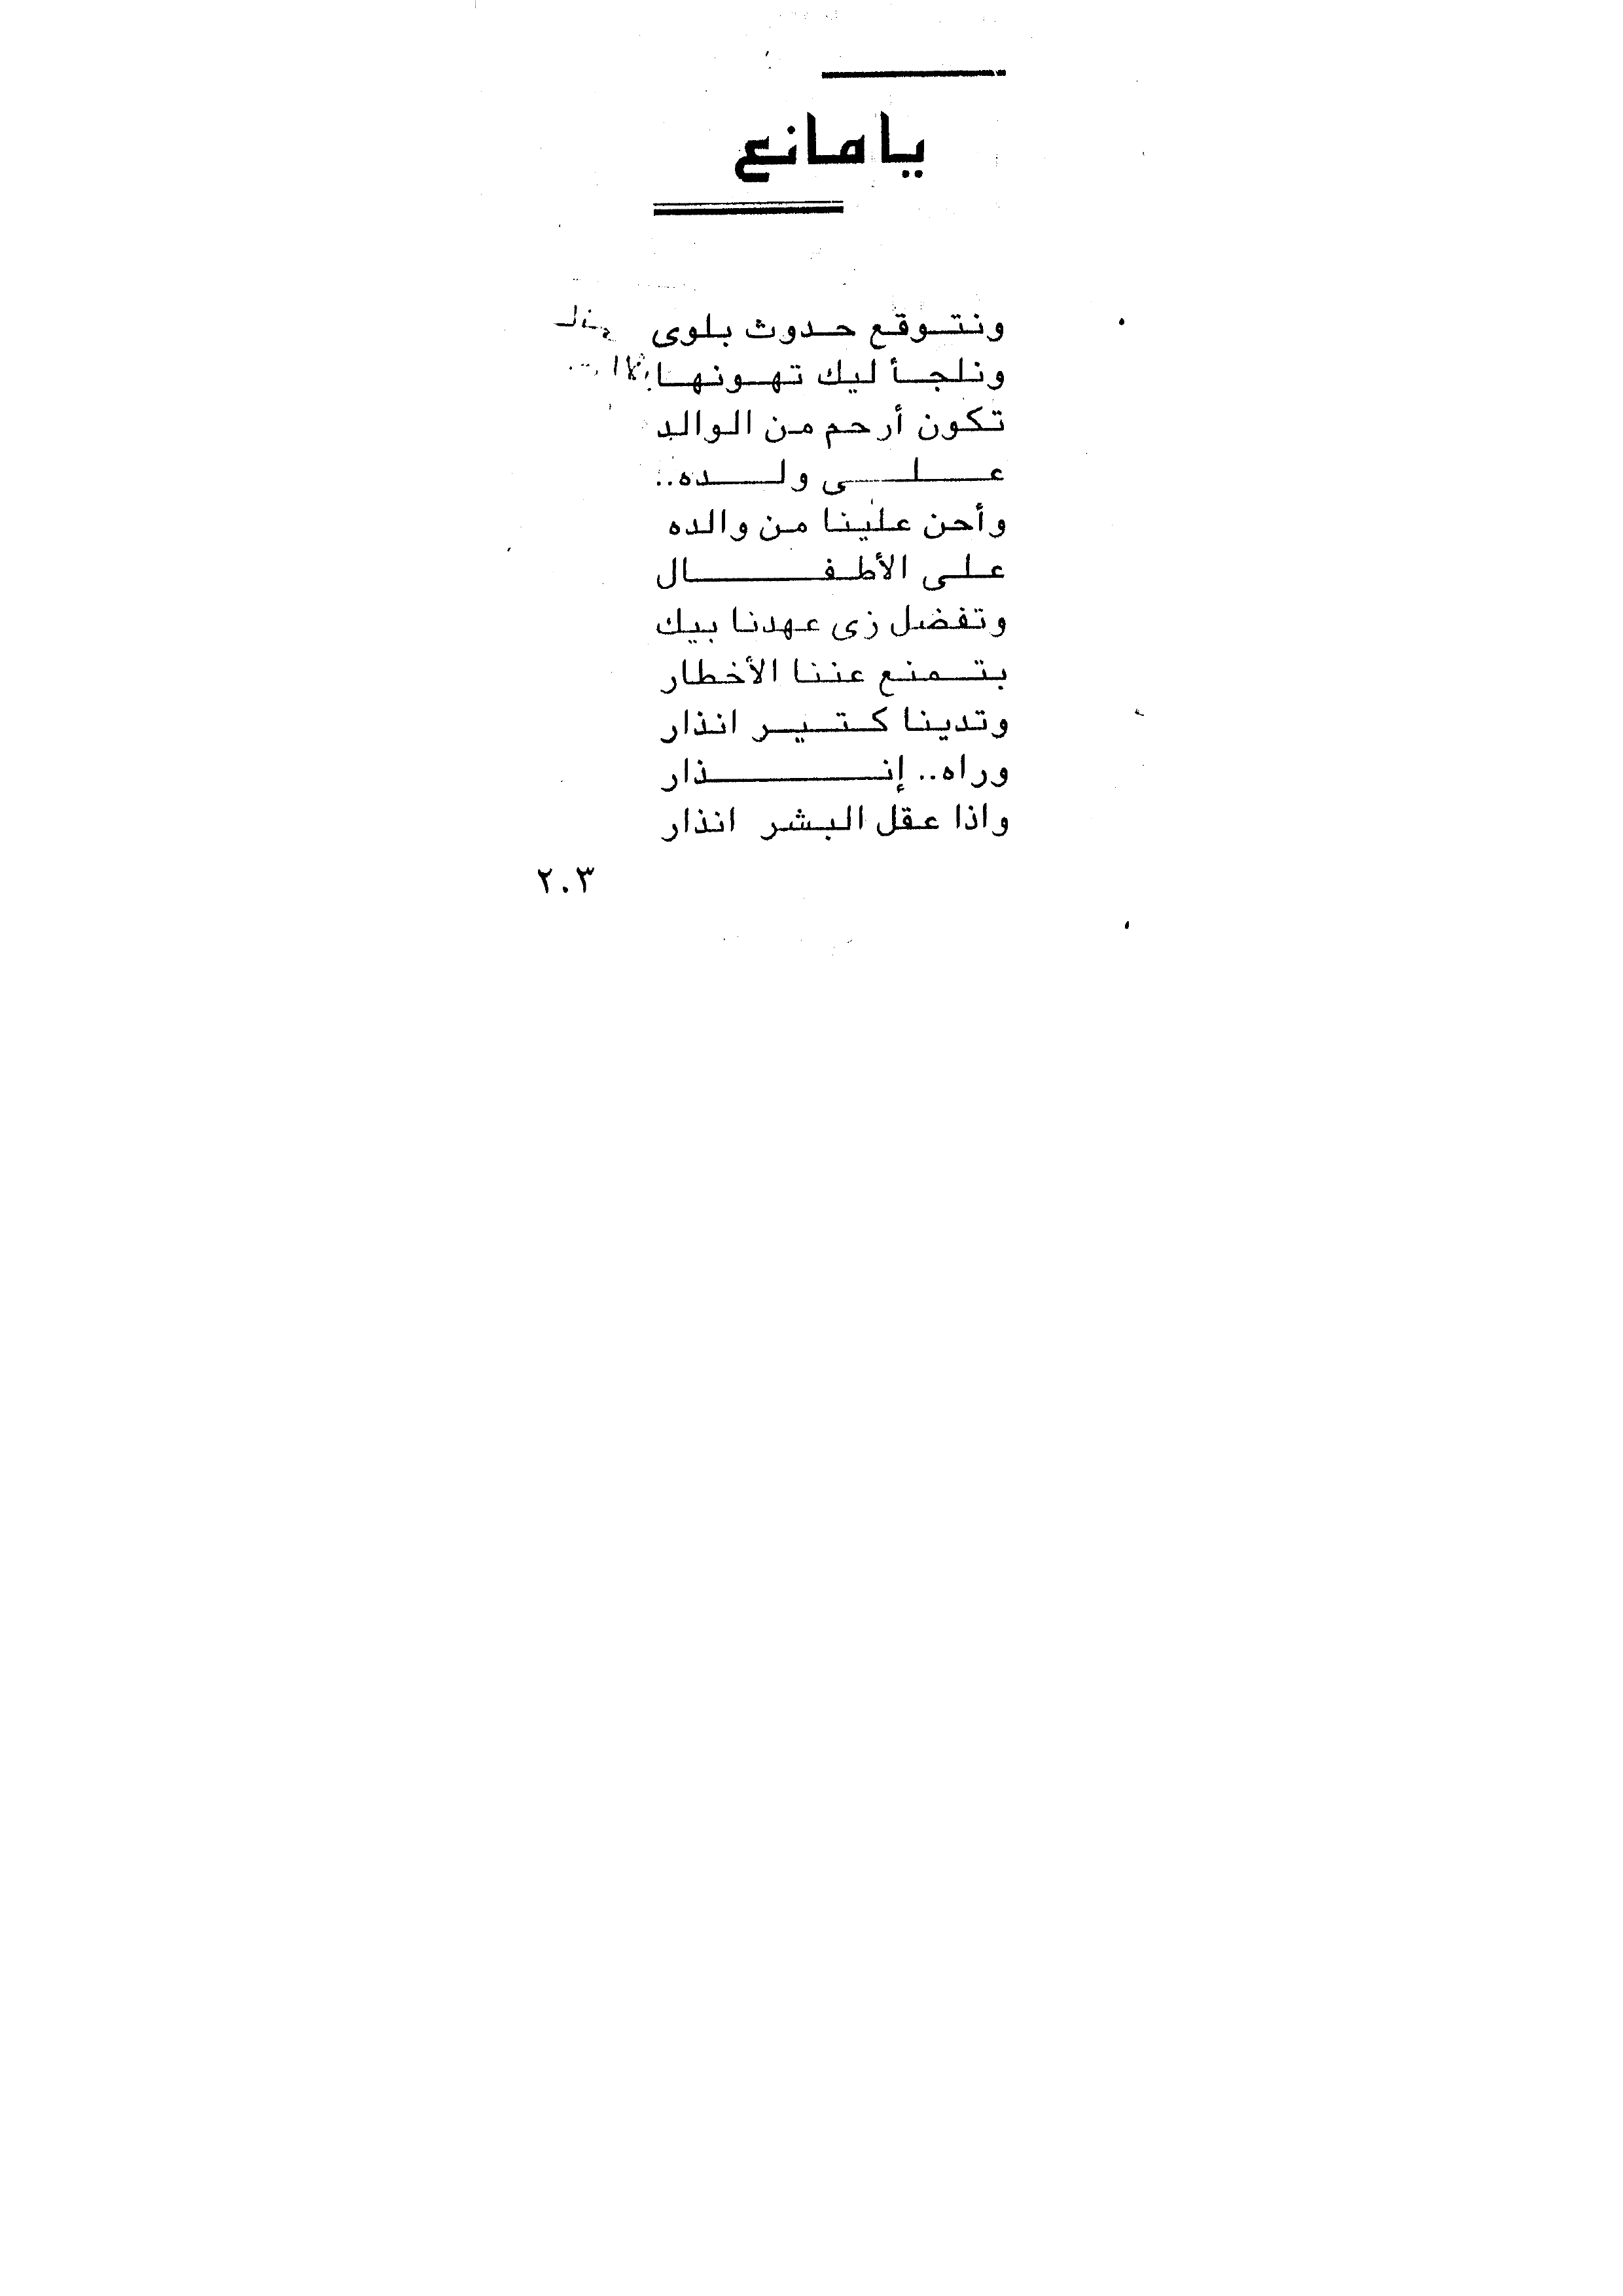 يا مانع
ونتوقع حدوث بلوى
ونلجأ ليك تهونها
تكون أرحم من الوالد
على ولده..
وأحن علينا من والده
على الأطفال
وتفضل زى عهدنا بيك
بتمنع عننا الأخطار
وتدينا كتير انذار
وراه.. إنذار
واذا عقل البشر انذار
٢٠٣